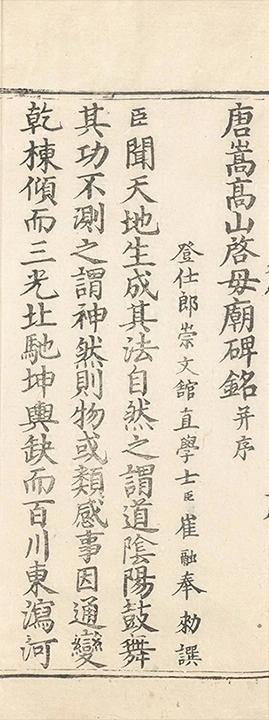 唐嵩高山啓母廟碑銘并序
登仕郎崇文館直學士臣崔融奉勑譔
臣聞天地生成其法自然之謂道陰陽鼓舞
其功不測之謂神然則物或類感事因通變
乾棟傾而三光北馳坤輿缺而百川東瀉河